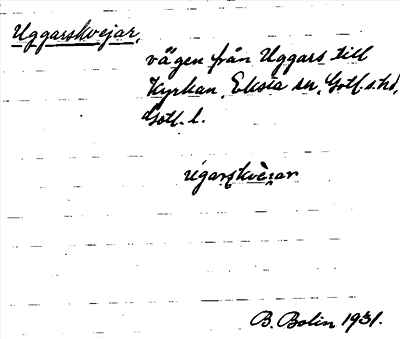 Uggarskvejar,
vägen från Uggars till
Kyrkan, Eksta sn, Gotl. s. hd,
Gotl. l.
B. Bolin 1931.